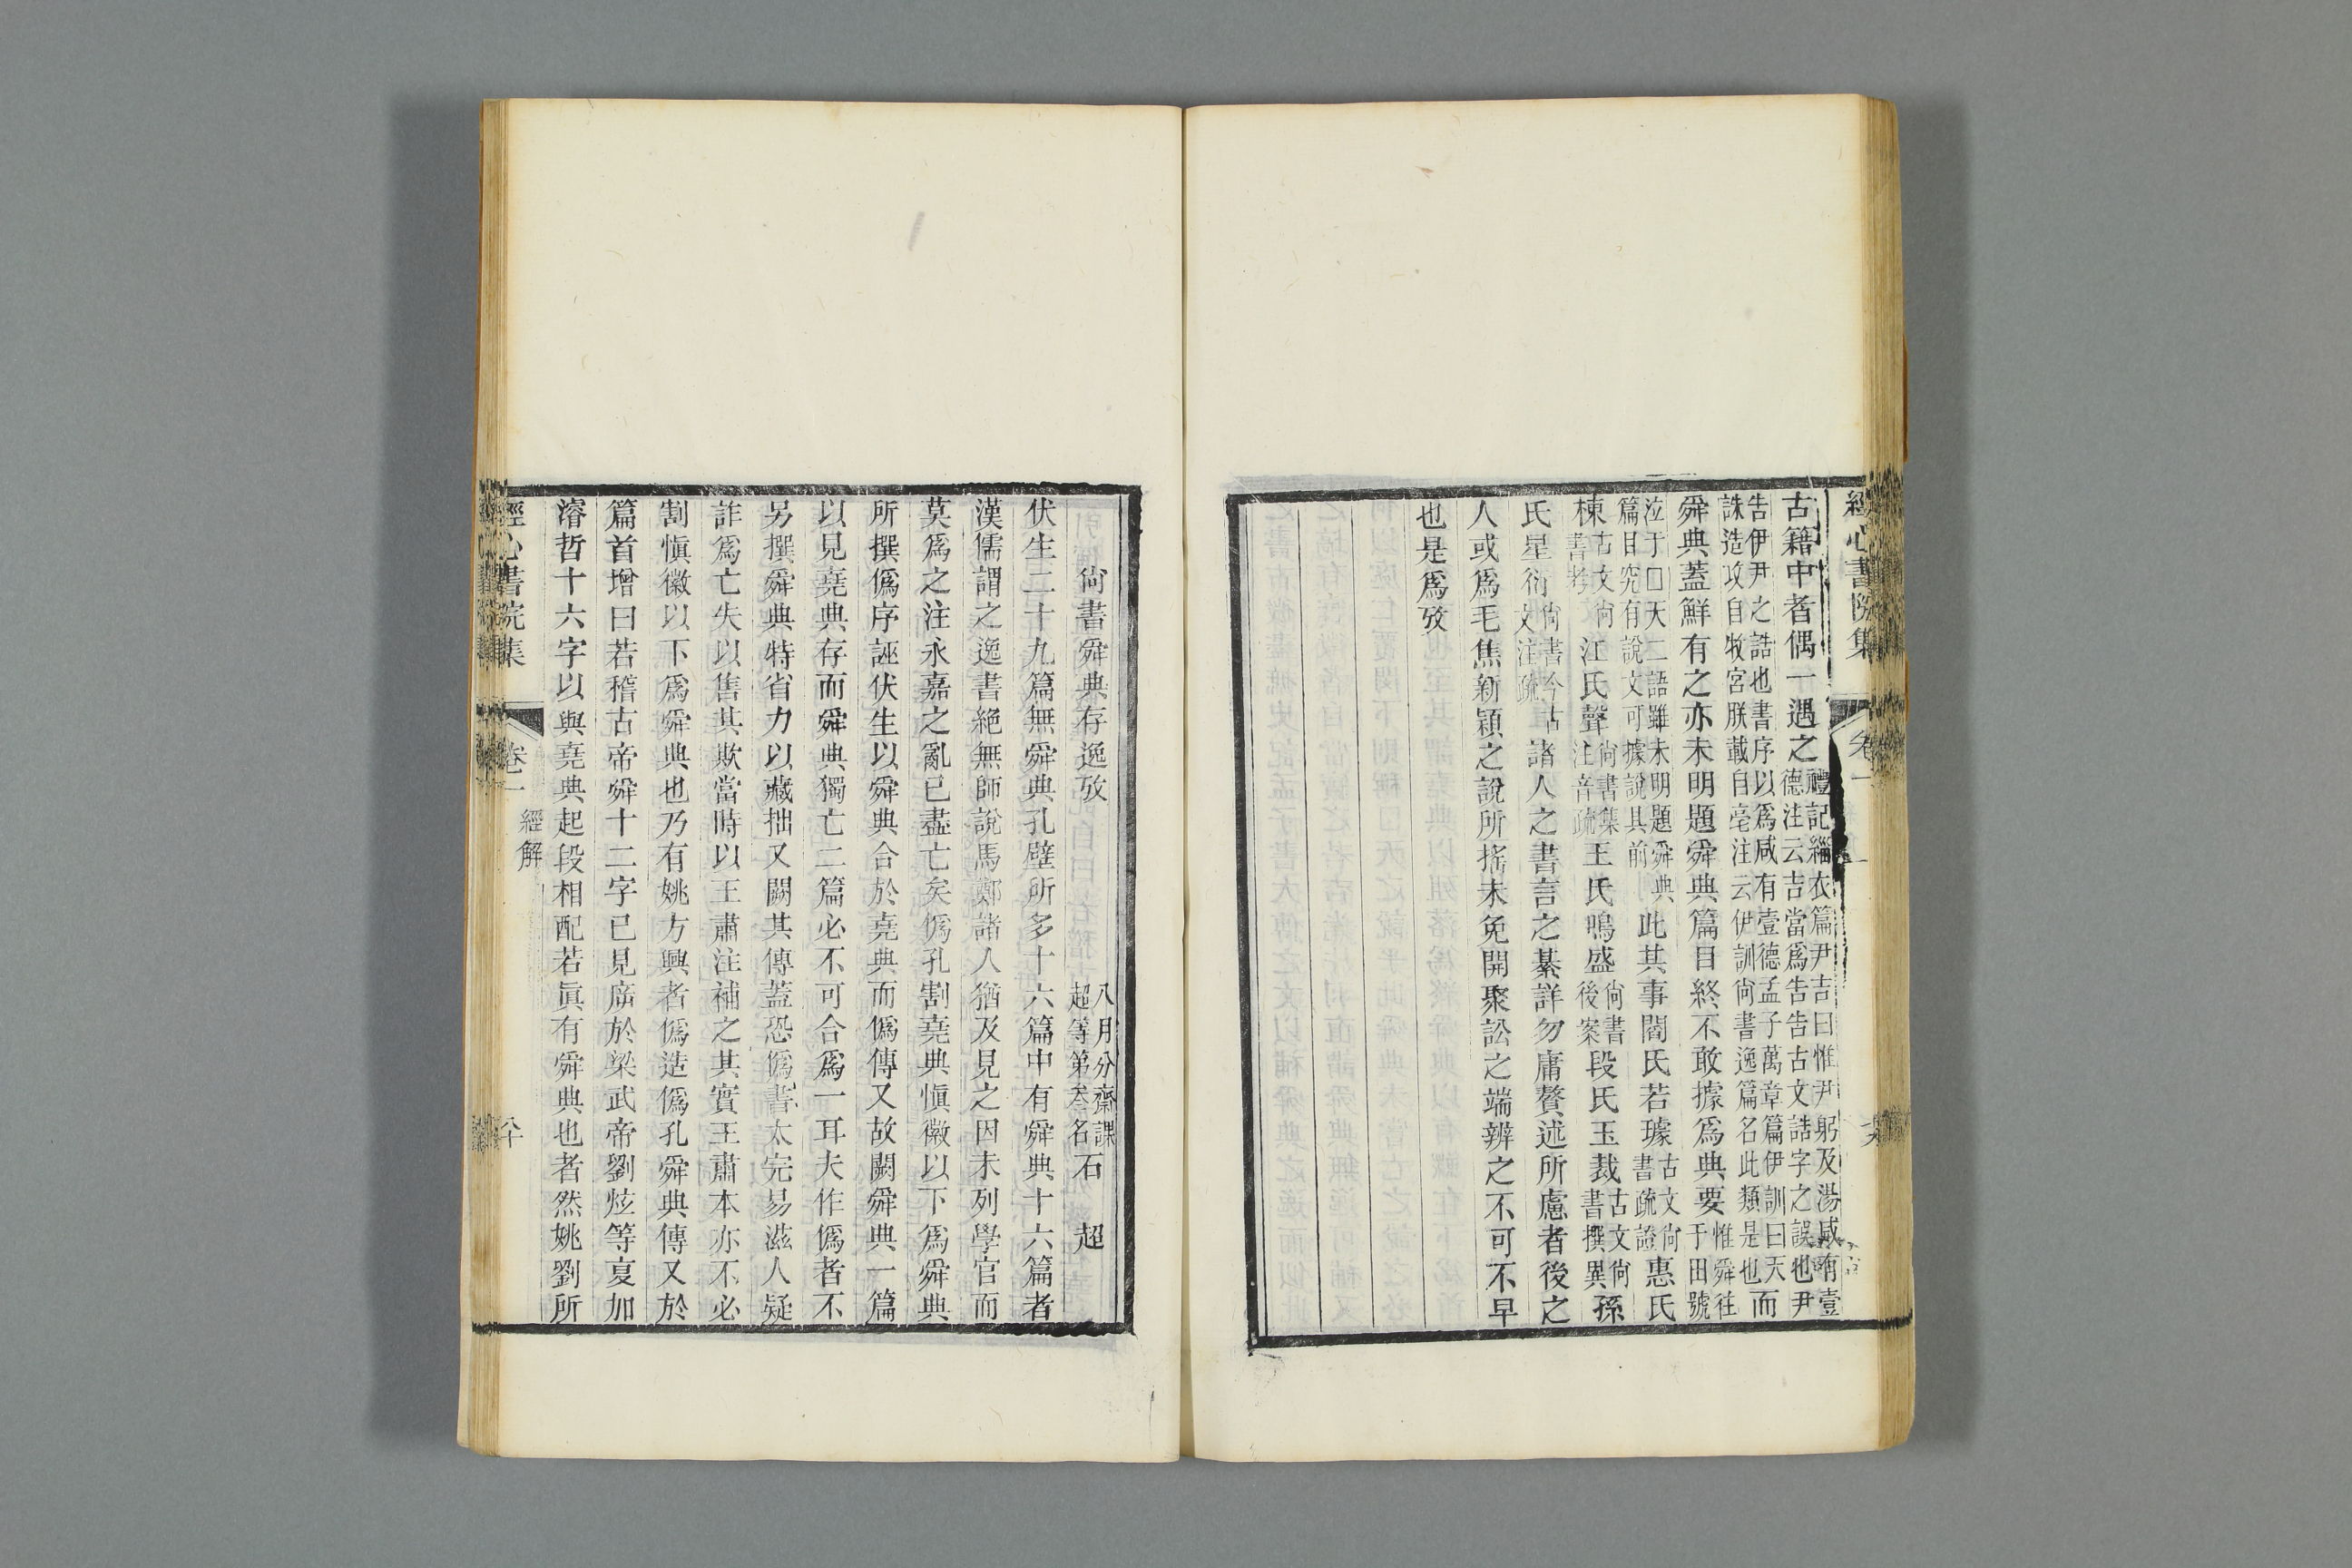 經心書院集 卷一
古籍中者偶一遇之禮記緇衣篇尹吉曰惟尹躬及湯咸有壹
德注云吉當爲告告古文誥字之誤也尹
告伊尹之誥也書序以爲咸有壹德孟子萬章篇伊訓曰天而
誅造攻自牧宮朕載自亳注云伊訓尙書逸篇名此類是也
舜典蓋鮮有之亦未明題舜典篇目終不敢據爲典要惟舜往
于田號
泣于旻天二語雖未明題舜典
篇目究有說文可據說具前此其事閻氏若璩古文尙
書疏證惠氏
棟古文尙
書攷江氏聲尙書集
注音疏王氏鳴盛尙書
後案段氏玉裁古文尙
書撰異孫
氏星衍尙書今古
文注疏諸人之書言之綦詳勿庸贅述所慮者後之
人或爲毛焦新穎之說所搖未免開聚訟之端辨之不可不早
也是爲攷
尙書舜典存逸攷 八月分齋課
超等第叁名石 超
伏生二十九篇無舜典孔壁所多十六篇中有舜典十六篇者
漢儒謂之逸書絕無師說馬鄭諸人猶及見之因未列學官而
莫爲之注永嘉之亂已盡亡矣僞孔割堯典愼徽以下爲舜典
所撰僞序誣伏生以舜典合於堯典而僞傳又故闕舜典一篇
以見堯典存而舜典獨亡二篇必不可合爲一耳夫作僞者不
另撰舜典特省力以藏拙又闕其傳蓋恐僞書太完易滋人疑
詐爲亡失以售其欺當時以王肅注補之其實王肅本亦不必
割愼徽以下爲舜典也乃有姚方興者僞造僞孔舜典傳又於
篇首增曰若稽古帝舜十二字已見廣於梁武帝劉炫等夐加
濬哲十六字以與堯典起段相配若眞有舜典也者然姚劉所
經心書院集 卷一 經解